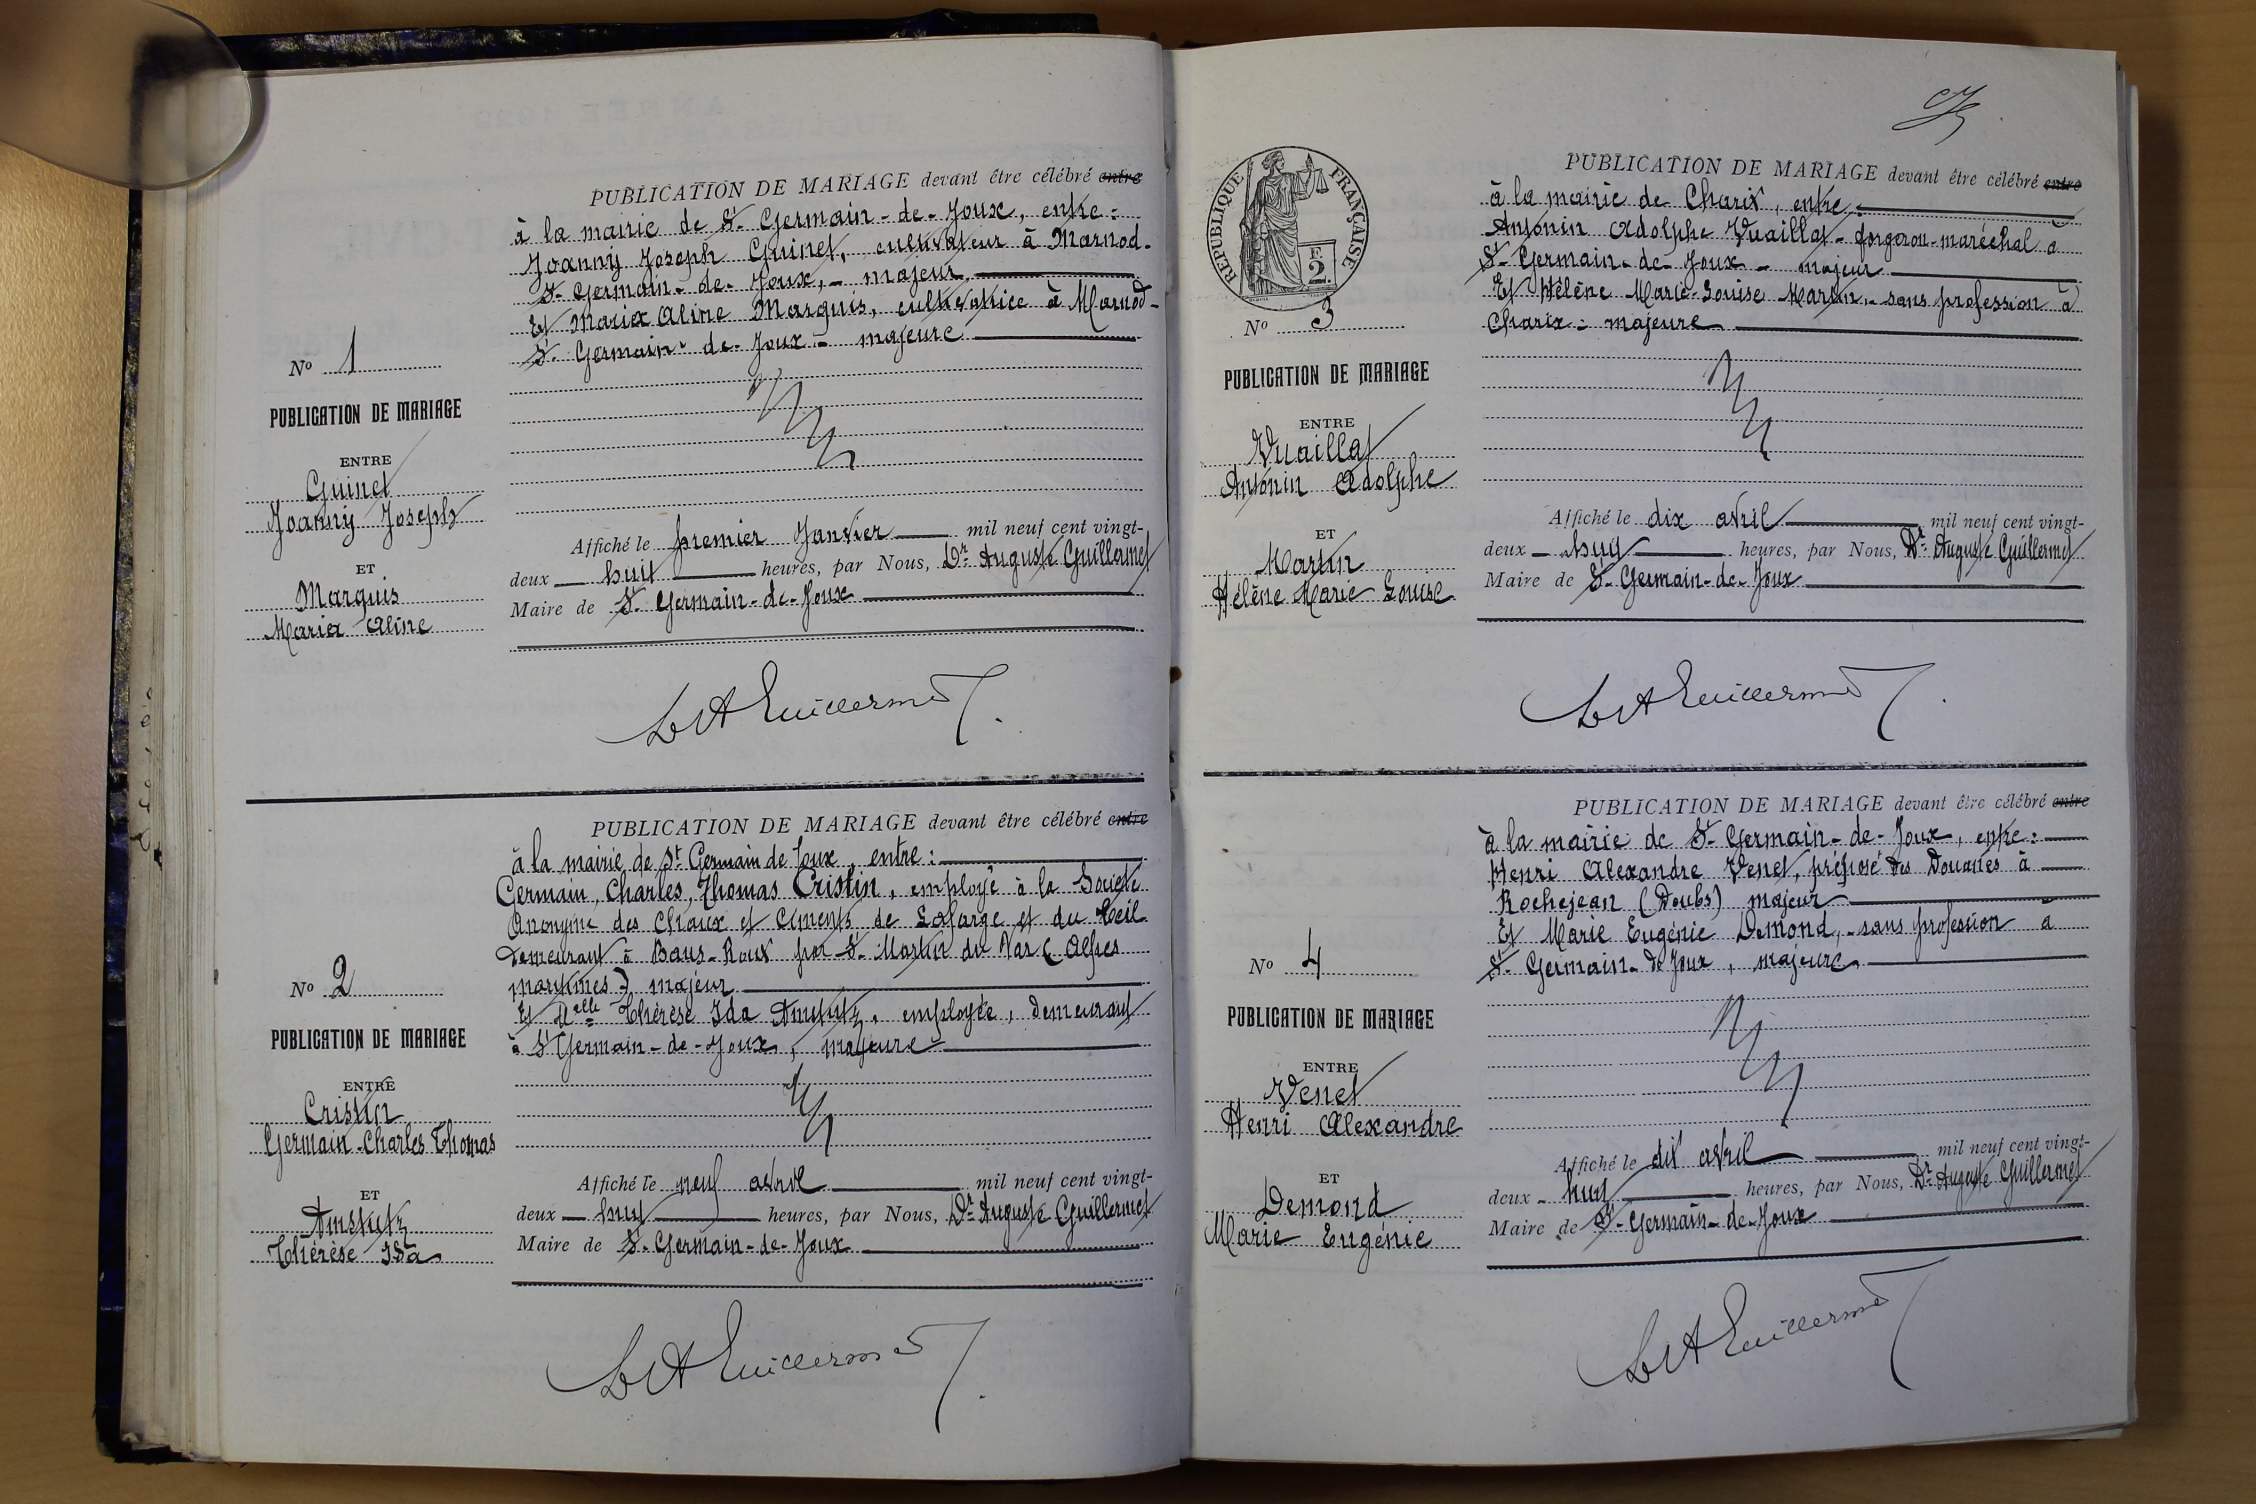 PUBLICATION DE MARIAGE devant être célébré entre
à la mairie de St Germain-de-Joux, entre:
Joanny Joseph Guinet, cultivateur à Marnod.
St Germain-de-Joux,- majeur
Et Maria Aline Marquis, cultivatrice à Marnod-
St Germain-de-Joux - majeure
No 1
PUBLICATION DE MARIAGE
ENTRE
Guinet
Joanny Joseph
ET
Marquis
Maria Aline
Affiché le premier Janvier mil neuf cent vingt-
deux huit heures, par Nous, Dr Auguste Guillermet
Maire de St Germain-de-Joux
Dr A Guillermet
PUBLICATION DE MARIAGE devant être célébré entre
à la mairie de St Germain de Joux, entre:
Germain, Charles, Thomas Cristin, employé à la Société
Anonyme des Chaux et Ciments de Lafarge et du Teil
demeurant à Baus-Roux par St Martin du Var (Alpes
maritimes) majeur
Et Delle Thérèse Ida Amstutz, employée, demeurant
à St Germain-de-Joux, majeure
No 2
PUBLICATION DE MARIAGE
ENTRE
Cristin
Germain-Charles Thomas
ET
Amstutz
Thérèse Ida
Affiché le neuf avril mil neuf cent vingt-
deux huit heures, par Nous, Dr Auguste Guillermet
Maire de St Germain-de-Joux
Dr A Guillermet
RÉPUBLIQUE FRANÇAISE
F.
2
PUBLICATION DE MARIAGE devant être célébré entre
à la mairie de Charix, entre:
Antonin Adolphe Vuaillat - forgeron-maréchal à
St Germain-de-Joux - majeur
Et Hélène Marie-Louise Martin,- sans profession à
Charix - majeure
No 3
PUBLICATION DE MARIAGE
ENTRE
Vuaillat
Antonin Adolphe
ET
Martin
Hélène Marie Louise
Affiché le dix avril mil neuf cent vingt-
deux huit heures, par Nous, Dr Auguste Guillermet
Maire de St Germain-de-Joux
Dr A Guillermet
PUBLICATION DE MARIAGE devant être célébré entre
à la mairie de St Germain-de-Joux, entre:
Henri Alexandre Venet, préposé des Douanes à
Rochejean (Doubs) majeur
Et Marie Eugénie Demond,- sans profession à
St Germain-de Joux, majeure
No 4
PUBLICATION DE MARIAGE
ENTRE
Venet
Henri Alexandre
ET
Demond
Marie Eugénie
Affiché le dix avril mil neuf cent vingt-
deux huit heures, par Nous, Dr Auguste Guillermet
Maire de St Germain-de-Joux
Dr A Guillermet